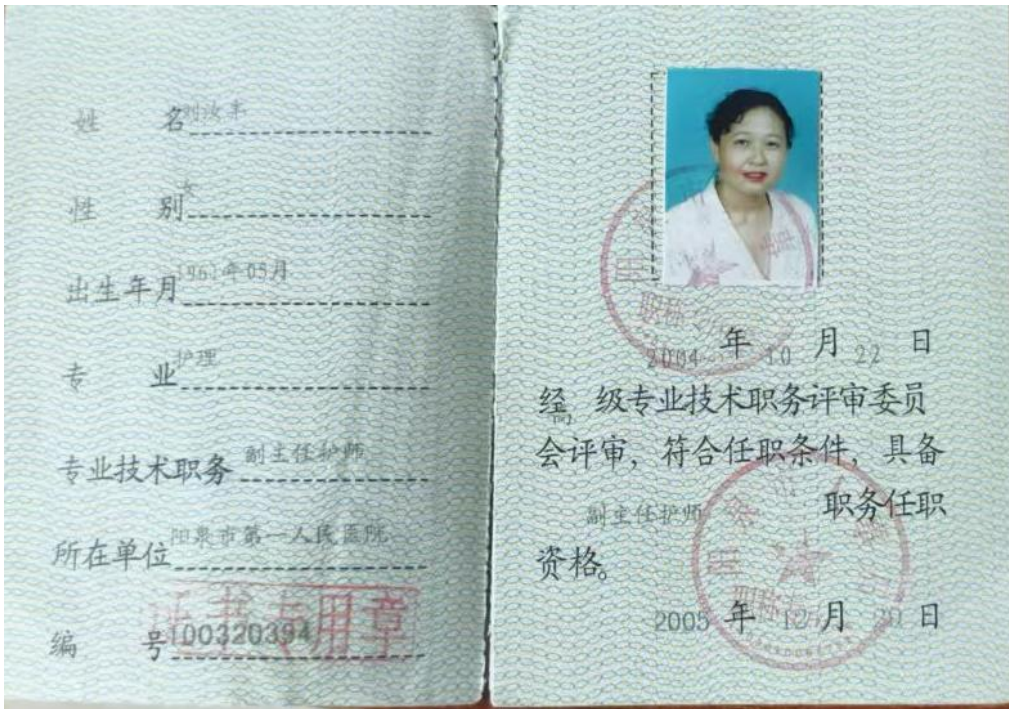 姓 名 刘汝丰
性 别 女
出生年月 1961年05月
专 业 护理
专业技术职务 副主任护师
所在单位 阳泉市第一人民医院
编 号 100320394
证书专用章
2004 年 10 月 22 日
经 高 级专业技术职务评审委员
会评审，符合任职条件，具备
副主任护师 职务任职
资格。
2005 年 12 月 20 日